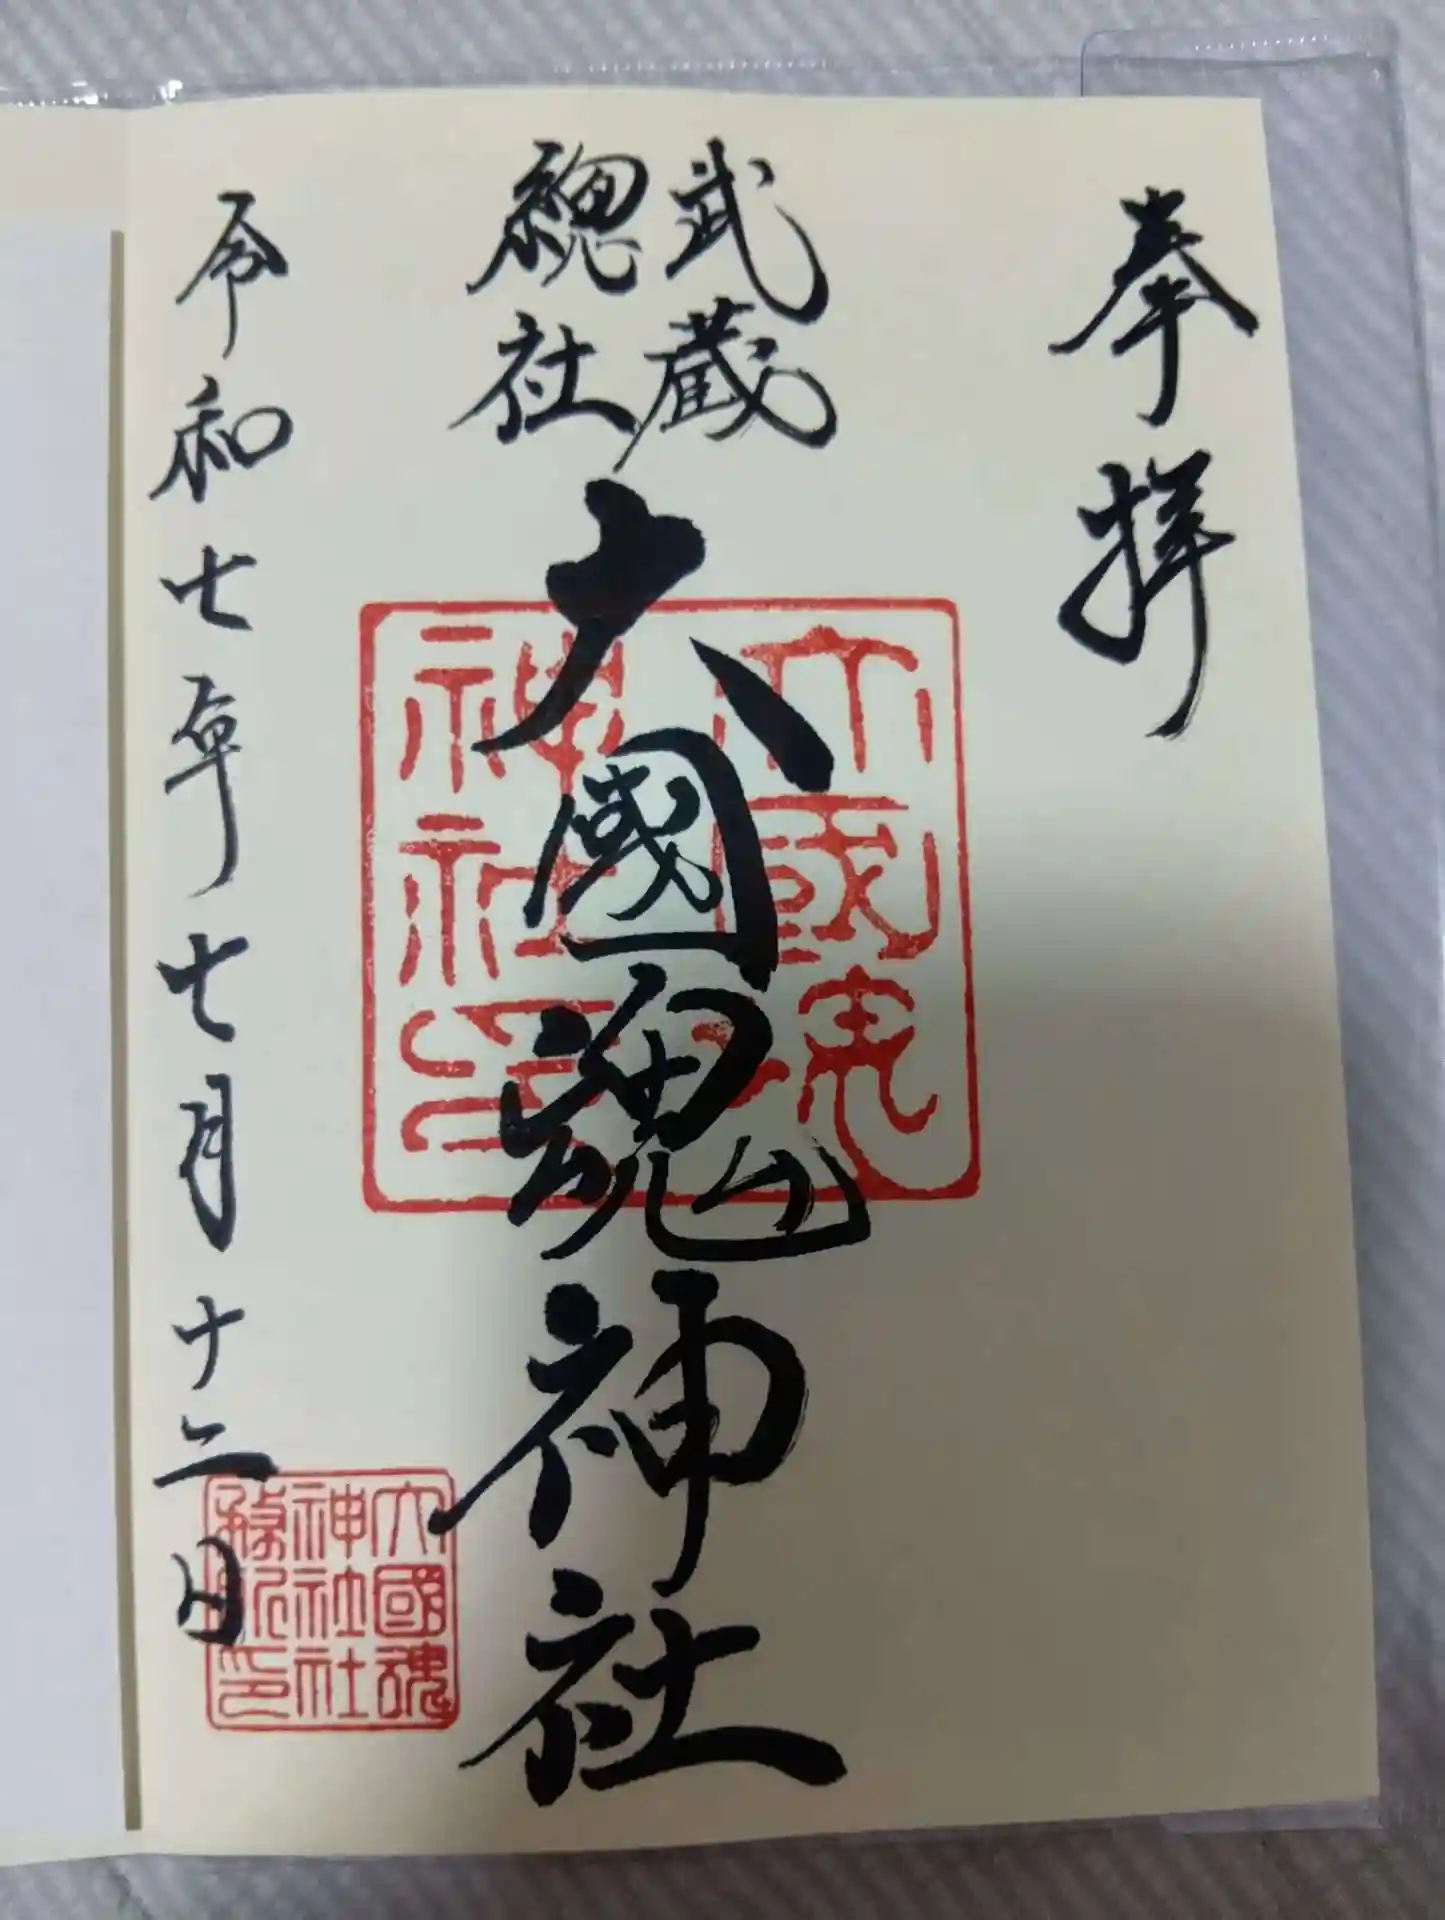 奉拝
武蔵
總社
大國魂神社
令和七年七月十二日
大國魂
神社印
大國魂
神社社
務所印